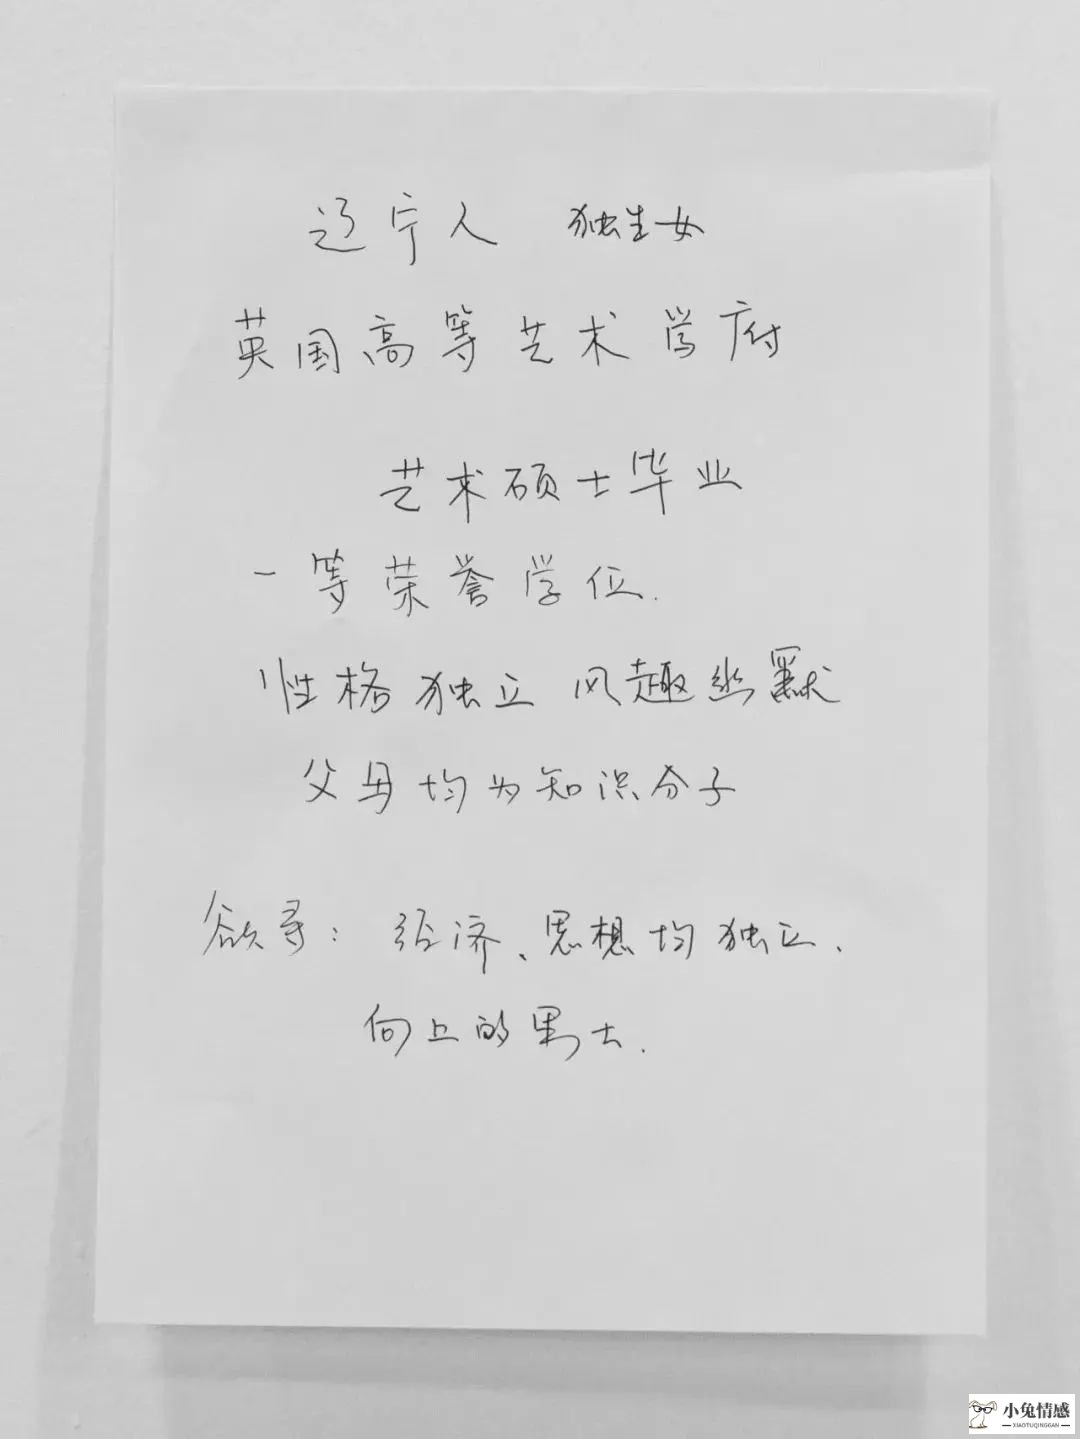 辽宁人 独生女
英国高等艺术学府
艺术硕士毕业
一等荣誉学位.
性格独立 风趣幽默
父母均为知识分子
欲寻：经济、思想均独立、
向上的男士.
小兔情感
XIAOTUQINGGAN